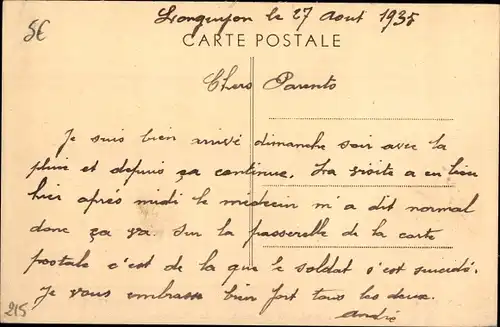 5€
Longuyon le 27 Aout 1935
CARTE POSTALE
Chers Parents
Je suis bien arrivé dimanche soir avec la
pluie et depuis ça continue. La visite a eu lieu
hier après midi le médecin m'a dit normal
donc ça va. Sur la passerelle de la carte
postale c'est de la que le soldat s'est suicidé.
Je vous embrasse bien fort tous les deux.
André
215